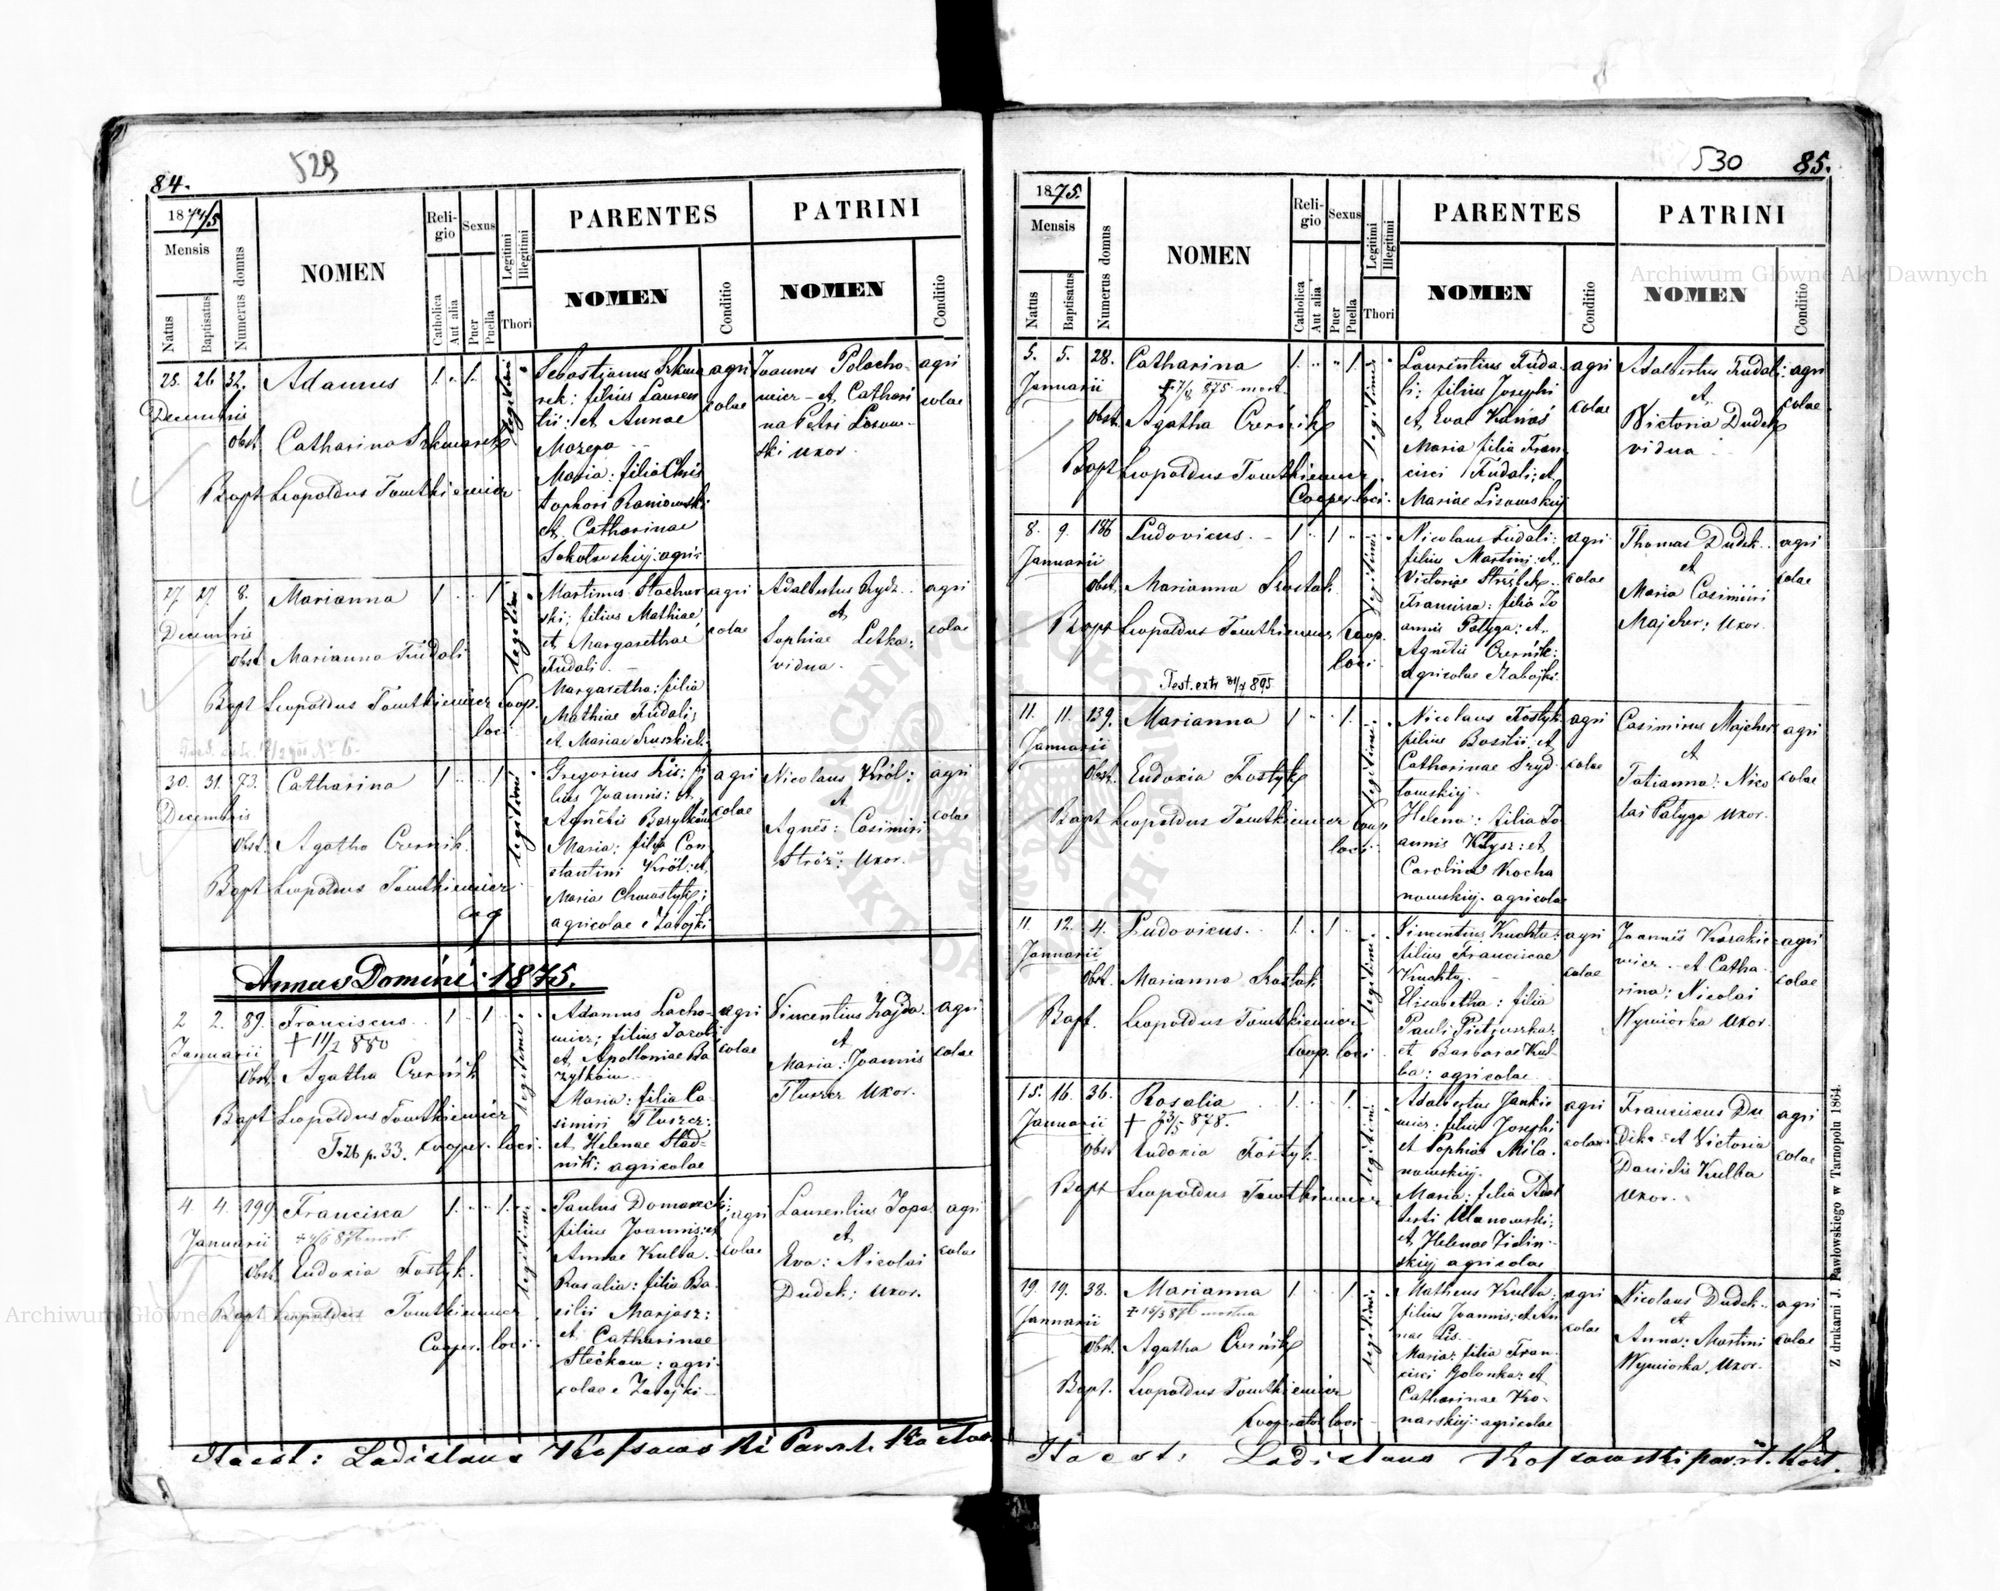 84.
529
1874/5
Mensis
Natus
Baptisatus
Numerus domus
NOMEN
Reli-
gio
Catholica
Aut alia
Sexus
Puer
Puella
Legitimi
Illegitimi
Thori
PARENTES
NOMEN
Conditio
PATRINI
NOMEN
Conditio
25. 26 32. Adamus 1. 1.
Decembris
obst. Catharina
Bapt Leopoldus Tomtkiewicz
legitimi
Sebastianus
rek: filius Lauren
tii: et Annae
Mazepa
Maria: filia Chris
tophori Raniowski
et Catharinae
Sokolowskij: agri:
agri
colae
Joannes Polacho-
wicz et Cathari
na Petri
ski uxor.
agri
colae
27. 27. 8. Marianna 1. 1
Decembris
obst Marianna Fudali
Bapt Leopoldus Tomtkiewicz Coop.
loci
legitimi
Martinus Stachur
ski; filius Mathiae
et Margarethae
Fudali
Margaretha: filia
Mathiae Fudali;
et Mariae
agri
colae
Adalbertus Rydz
et
Sophiae Letka:
vidua.
agri
colae
30. 31. 73. Catharina 1. 1.
Decembris
Obst. Agatha Czernik.
Bapt Leopoldus Tomtkiewicz
legitimi
Gregorius Lis: fi
lius Joannis: et
Agnetis Bazylków
Maria: filia Con
stantini Król: et
Maria
agricolae e Zabojki
agri
colae
Nicolaus Król:
et
Agnes: Casimiri
Stróż: uxor.
agri
colae
Annus Domini: 1875.
2 2. 89. Franciscus 1. 1.
Januarii † 11/2 880
Obst. Agatha Czernik
Bapt Leopoldus Tomtkiewicz
T. 26 p. 33. Cooper. loci.
legitimi
Adamus Lacho-
wicz; filius Jacobi
et Apolloniae Ba
zylków
Maria: filia Ca-
simiri Tluszcz:
et Helenae Stad-
nik: agricolae
agri
colae
Vincentius Zajda
et
Maria: Joannis
Tluszcz uxor.
agri
colae
4. 4. 199 Francisca 1. 1.
Januarii
Obst Eudoxia Fostyk.
Bapt Leopoldus Tomtkiewicz
Cooper. loci.
legitimi
Paulus Domarecki;
filius Joannis: et
Annae Kulba.
Rosalia: filia Ba-
silii Marjasz:
et Catharinae
Steckow: agri-
colae e Zabojki
agri
colae
Laurentius Topa
et
Eva: Nicolai
Dudek: uxor.
agri
colae
Ita est: Ladislaus
530
85.
1875.
Mensis
Natus
Baptisatus
Numerus domus
NOMEN
Reli-
gio
Catholica
Aut alia
Sexus
Puer
Puella
Legitimi
Illegitimi
Thori
PARENTES
NOMEN
Conditio
PATRINI
NOMEN
Conditio
5. 5. 28. Catharina 1. 1.
Januarii
Obst Agatha Czernik
Bapt Leopoldus Tomtkiewicz
Cooper. loci.
legitimi
Laurentius Fuda-
li; filius Josephi
et Evae
Maria filia Fran
cisci Fudali; et
Mariae Lisowskij
agri
colae
Adalbertus Fudali
et
Victoria Dudek
vidua
agri
colae
8. 9. 186 Ludovicus. 1. 1
Januarii
Obst. Marianna Szostak
Bapt Leopoldus Tomtkiewicz Coop.
loci.
legitimi
Nicolaus Fudali:
filius Martini: et
Victoriae
Francisca: filia Jo
annis Patyga: et
Agnetis Czernik:
agricolae Zabojki
agri
colae
Thomas Dudek
et
Maria Casimiri
Majcher: uxor.
agri
colae
Test. extr
11. 11. 139. Marianna 1. 1.
Januarii
Obst. Eudoxia Fostyk
Bapt Leopoldus Tomtkiewicz Coop
loci.
legitimi
Nicolaus Fostyk
filius Basilii et
Catharinae Szyd-
lowskij
Helena: filia Jo
annis
Carolina Kocha
nowskij. agricola
agri
colae
Casimirus Majcher
et
Tatianna: Nico
lai Patyga uxor.
agri
colae
11. 12. 4. Ludovicus. 1. 1.
Januarii
Obst. Marianna Szostak
Bapt. Leopoldus Tomtkiewicz
Coop. loci.
legitimi
Vincentius Kuchta:
filius Franciscae
Kuchty.
Elisabetha: filia
Pauli Pietruszka:
et Barbarae Kul-
ba: agricolae
agri
colae
Joannes
wicz et Catha
rina: Nicolai
Wywiorka uxor.
agri
colae
15. 16. 36. Rosalia 1. 1.
Januarii † 23/5 878.
Obst Eudoxia Fostyk
Bapt Leopoldus Tomtkiewicz
legitimi
Adalbertus Jankie
wicz: filius Josephi
et Sophiae Mila-
nowskij.
Maria: filia Adal
berti Ulanowski:
et Helenae Zielin-
skij agricolae
agri
colae
Franciscus Du
Dek: et Victoria
Danielis Kulba
uxor.
agri
colae
19. 19. 38. Marianna 1. 1.
Januarii
Obst. Agatha Czernik
Bapt. Leopoldus Tomtkiewicz
Cooperator loci
legitimi
Matheus Kulba:
filius Joannis: et An
nae Lis.
Maria: filia Fran-
cisci Golonka: et
Catharinae Kro-
narskij: agricolae
agri
colae
Nicolaus Dudek
et
Anna: Martini
Wywiorka uxor.
agri
colae
Ita est: Ladislaus
Z drukarni J. Pawłowskiego w Tarnopolu 1864.
Archiwum Główne Akt Dawnych
Archiwum Główne Akt Dawnych
ARCHIWUM GŁÓWNE AKT DAWNYCH